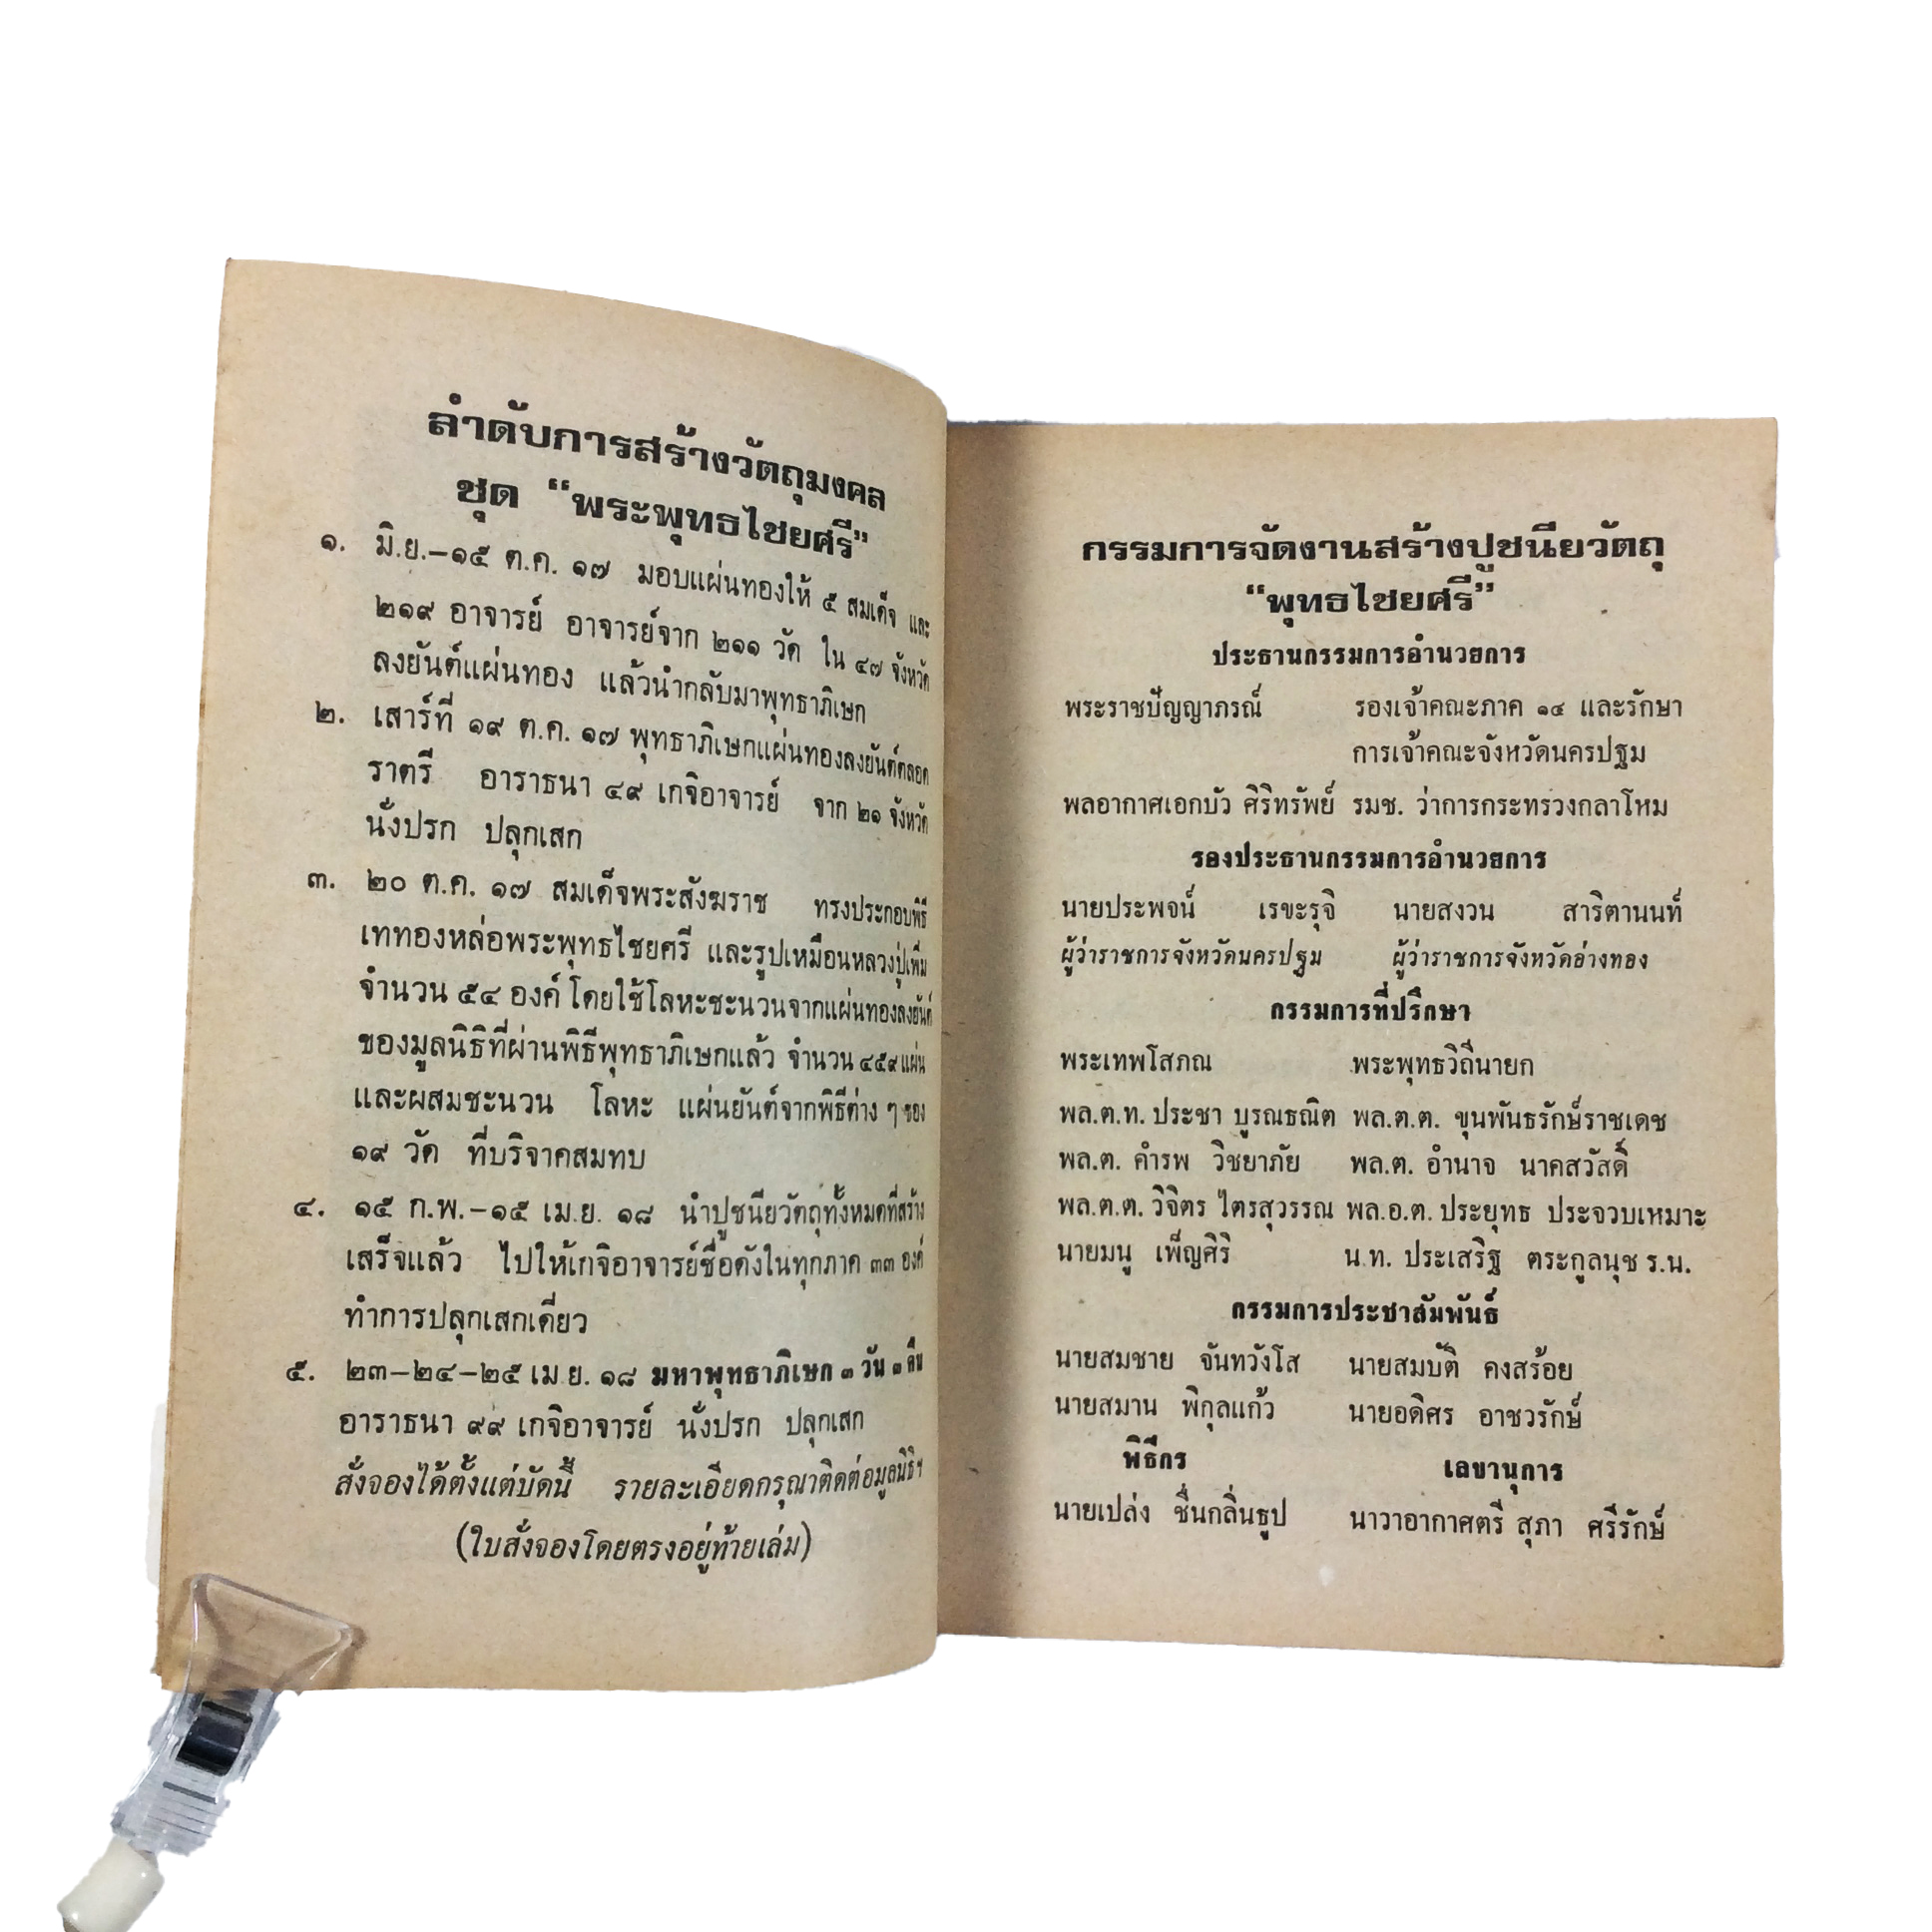 ลำดับการสร้างวัตถุมงคล
ชุด “พระพุทธไชยศรี”
๑. มิ.ย.–๑๕ ต.ค. ๑๗ มอบแผ่นทองให้ ๕ สมเด็จ และ
๒๑๙ อาจารย์ อาจารย์จาก ๒๑๑ วัด ใน ๔๗ จังหวัด
ลงยันต์แผ่นทอง แล้วนำกลับมาพุทธาภิเษก
๒. เสาร์ที่ ๑๙ ต.ค. ๑๗ พุทธาภิเษกแผ่นทองลงยันต์ตลอด
ราตรี อาราธนา ๔๙ เกจิอาจารย์ จาก ๒๑ จังหวัด
นั่งปรก ปลุกเสก
๓. ๒๐ ต.ค. ๑๗ สมเด็จพระสังฆราช ทรงประกอบพิธี
เททองหล่อพระพุทธไชยศรี และรูปเหมือนหลวงปู่เพิ่ม
จำนวน ๕๔ องค์ โดยใช้โลหะชะนวนจากแผ่นทองลงยันต์
ของมูลนิธิที่ผ่านพิธีพุทธาภิเษกแล้ว จำนวน ๔๕๙ แผ่น
และผสมชะนวน โลหะ แผ่นยันต์จากพิธีต่าง ๆ ของ
๑๙ วัด ที่บริจาคสมทบ
๔. ๑๕ ก.พ.–๑๕ เม.ย. ๑๘ นำปูชนียวัตถุทั้งหมดที่สร้าง
เสร็จแล้ว ไปให้เกจิอาจารย์ชื่อดังในทุกภาค ๓๓ องค์
ทำการปลุกเสกเดี่ยว
๕. ๒๓–๒๔–๒๕ เม.ย. ๑๘ มหาพุทธาภิเษก ๓ วัน ๓ คืน
อาราธนา ๙๙ เกจิอาจารย์ นั่งปรก ปลุกเสก
สั่งจองได้ตั้งแต่บัดนี้ รายละเอียดกรุณาติดต่อมูลนิธิฯ
(ใบสั่งจองโดยตรงอยู่ท้ายเล่ม)
กรรมการจัดงานสร้างปูชนียวัตถุ
“พุทธไชยศรี”
ประธานกรรมการอำนวยการ
พระราชปัญญาภรณ์ รองเจ้าคณะภาค ๑๔ และรักษา
การเจ้าคณะจังหวัดนครปฐม
พลอากาศเอกบัว ศิริทรัพย์ รมช. ว่าการกระทรวงกลาโหม
รองประธานกรรมการอำนวยการ
นายประพจน์ เรขะรุจิ นายสงวน สาริตานนท์
ผู้ว่าราชการจังหวัดนครปฐม ผู้ว่าราชการจังหวัดอ่างทอง
กรรมการที่ปรึกษา
พระเทพโสภณ พระพุทธวิถีนายก
พล.ต.ท. ประชา บูรณธณิต พล.ต.ต. ขุนพันธรักษ์ราชเดช
พล.ต. คำรพ วิชยาภัย พล.ต. อำนาจ นาคสวัสดิ์
พล.ต.ต. วิจิตร ไตรสุวรรณ พล.อ.ต. ประยุทธ ประจวบเหมาะ
นายมนู เพ็ญศิริ น.ท. ประเสริฐ ตระกูลนุช ร.น.
กรรมการประชาสัมพันธ์
นายสมชาย จันทวังโส นายสมบัติ คงสร้อย
นายสมาน พิกุลแก้ว นายอดิศร อาชวรักษ์
พิธีกร เลขานุการ
นายเปล่ง ชื่นกลิ่นธูป นาวาอากาศตรี สุภา ศรีรักษ์